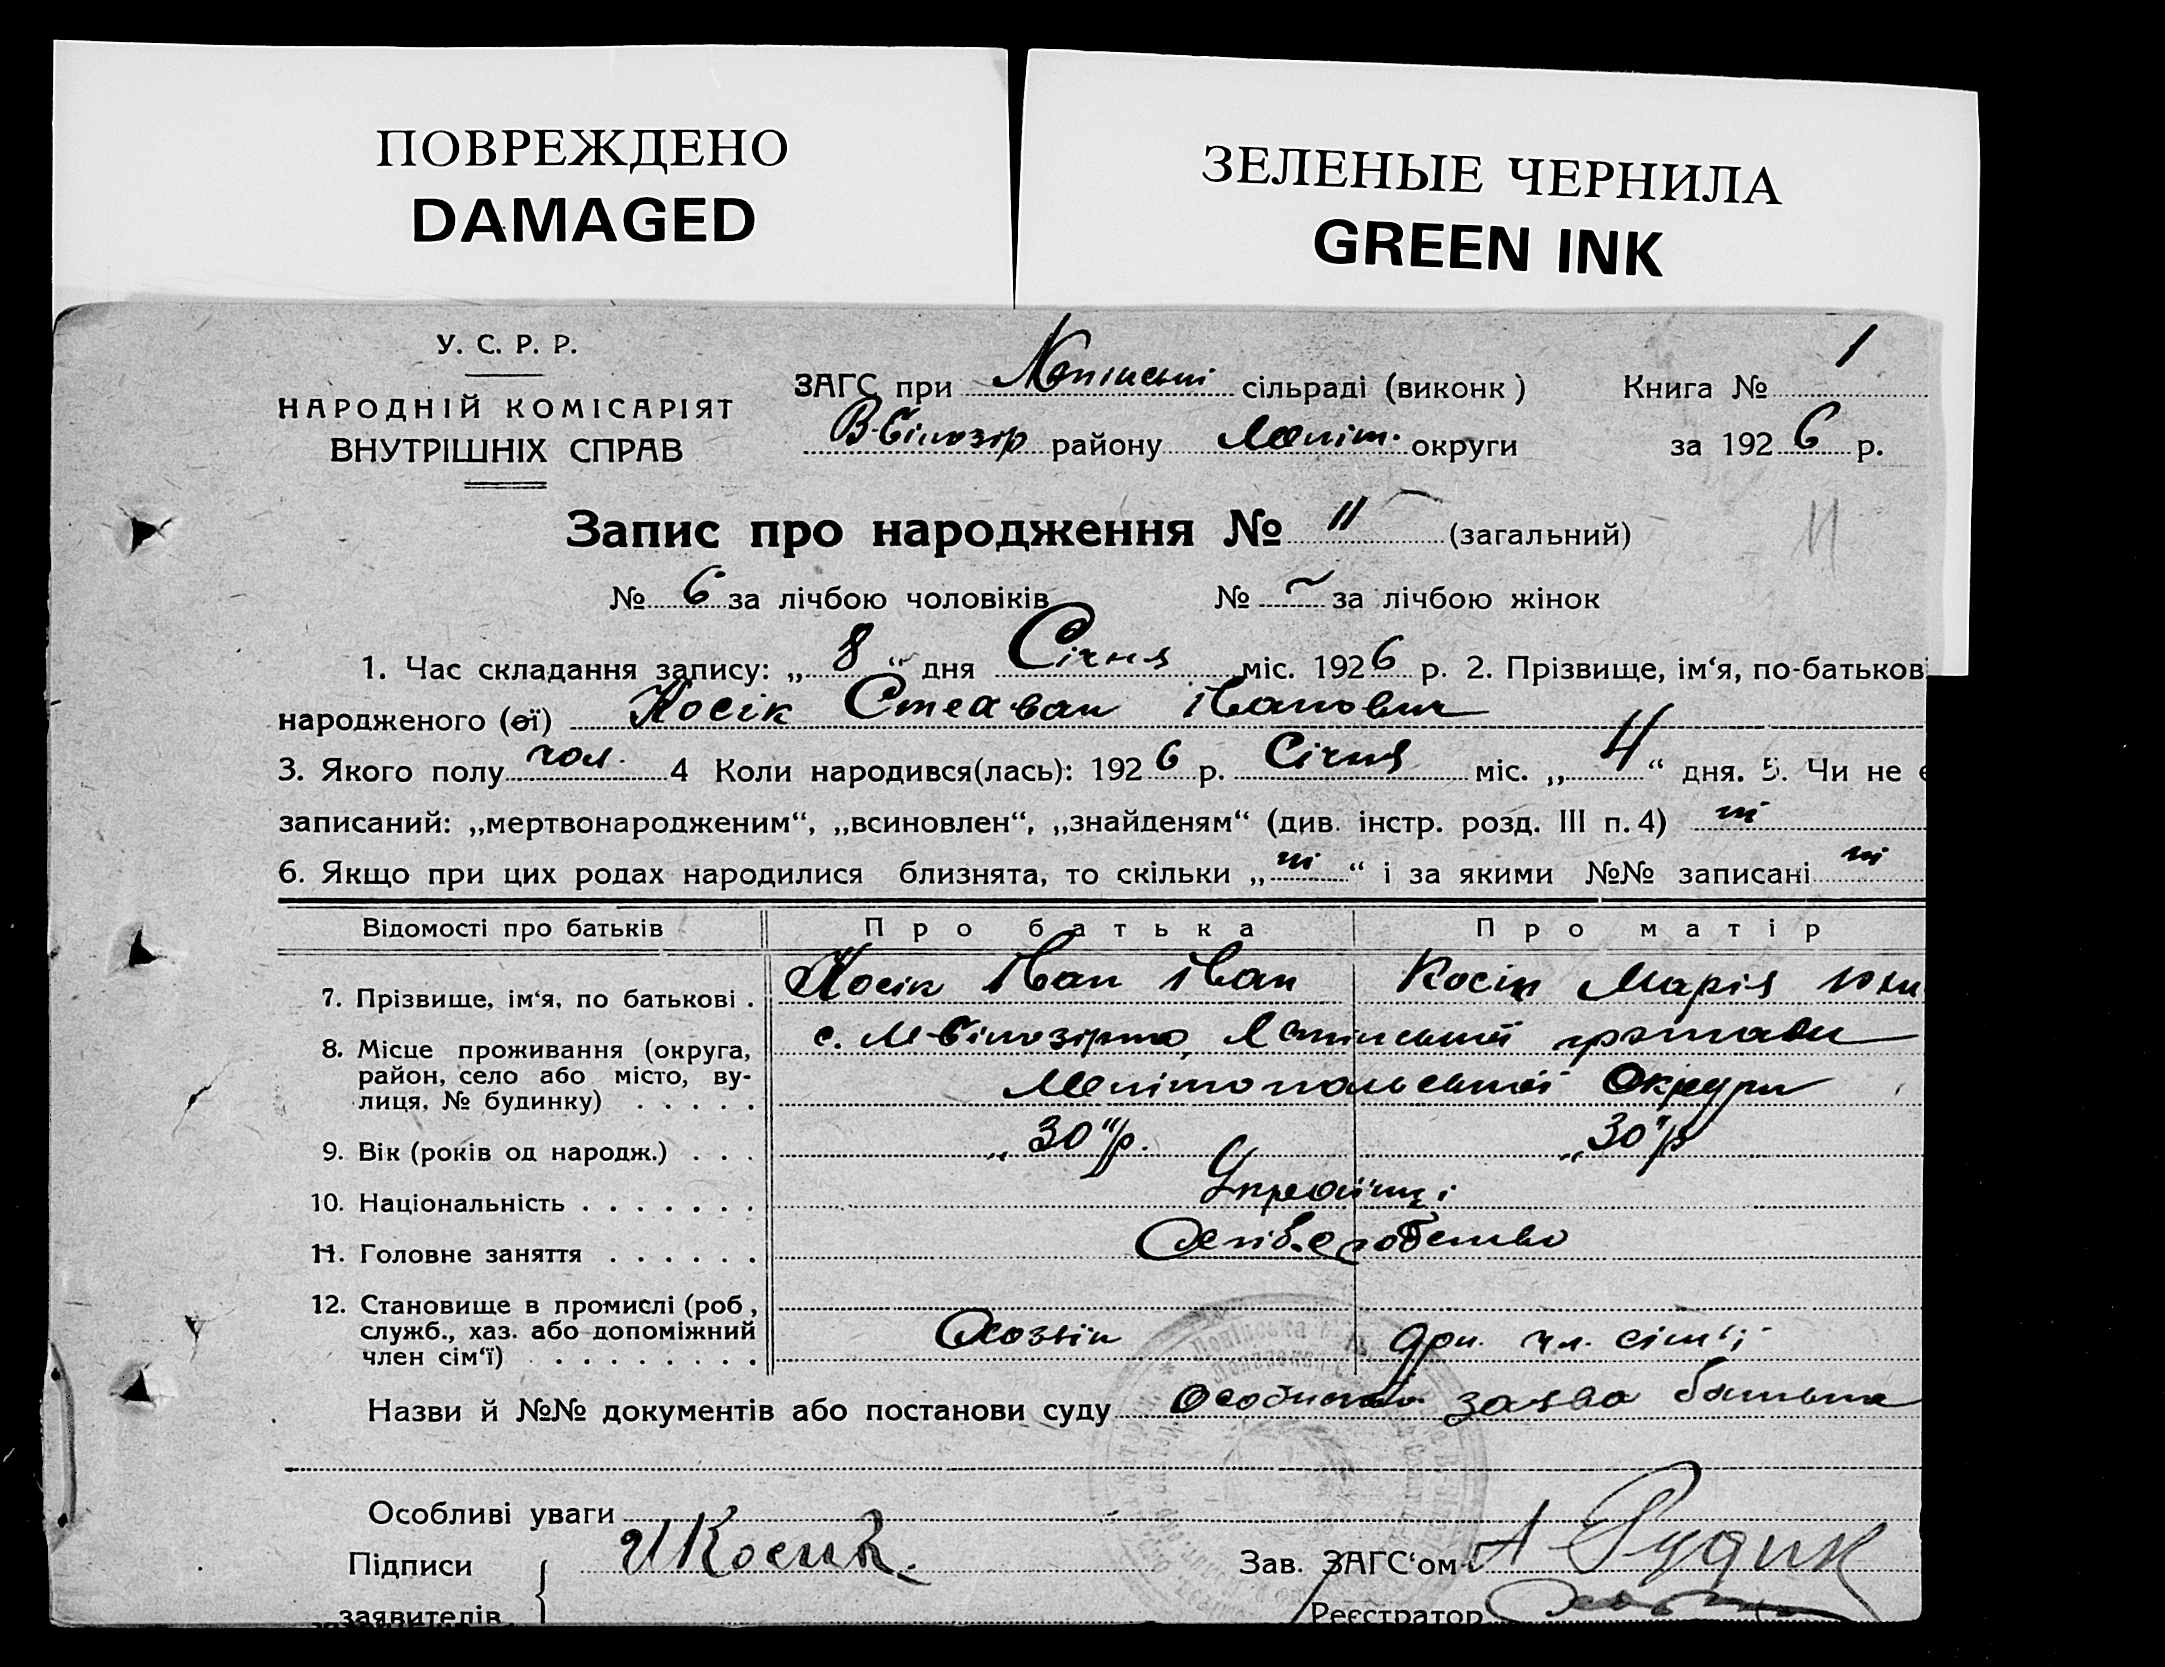 ПОВРЕЖДЕНО
DAMAGED
ЗЕЛЕНЫЕ ЧЕРНИЛА
GREEN INK
У. С. Р. Р.
НАРОДНІЙ КОМІСАРІЯТ
ВНУТРІШНІХ СПРАВ
ЗАГС при сільраді (виконк) Книга № 1
В-Білозір району Меліт. округи за 1926 р.
Запис про народження № 11 (загальний)
11
№ 6 за лічбою чоловіків № – за лічбою жінок
1. Час складання запису: „8“ дня Січня міс. 1926 р. 2. Прізвище, ім‘я, по-батькові
народженого (ої) Косік Стехван Іванович
3. Якого полу чол. 4 Коли народився(лась): 1926 р. Січня міс. „4“ дня. 5. Чи не є
записаний: „мертвонародженим“, „всиновлен“, „знайденям“ (див. інстр. розд. III п. 4) ні
6. Якщо при цих родах народилися близнята, то скільки „ні“ і за якими №№ записані ні
Відомості про батьків Про батька Про матір
7. Прізвище, ім‘я, по батькові . Косік Іван Іван Косік Марія
8. Місце проживання (округа, район, село або місто, вулиця, № будинку) . . . . . с. М-Білозірка,
Мелітопольської Округи
9. Вік (років од народж.) . . . „30“ р. „30“ р
10. Національність . . . . . . . Українці
11. Головне заняття . . . . . . Хліборобство
12. Становище в промислі (роб., служб., хаз. або допоміжний член сім‘ї) . . . . . . . . Хозяїн доп. чл. сім‘ї
Назви й №№ документів або постанови суду Особиста заява батька
Особливі уваги
Підписи заявителів И Косик.
Зав. ЗАГС‘ом А Рудик
Реєстратор